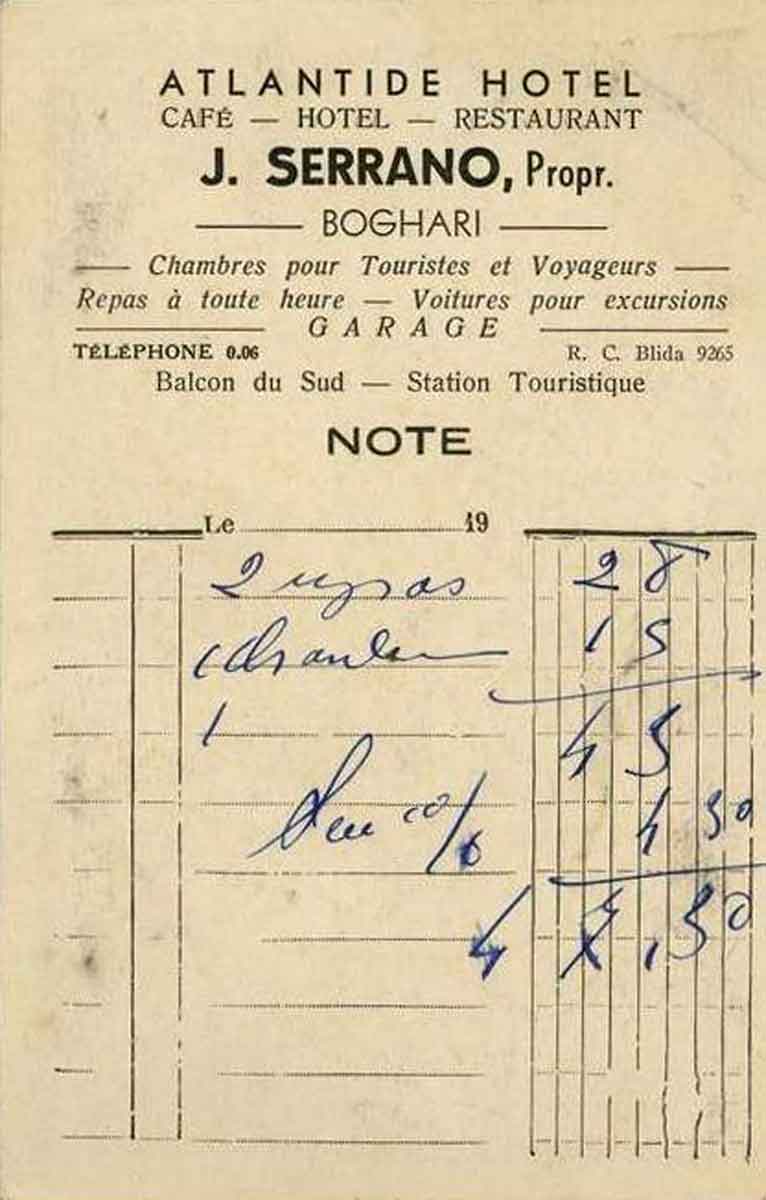 ATLANTIDE HOTEL
CAFÉ — HOTEL — RESTAURANT
J. SERRANO, Propr.
BOGHARI
Chambres pour Touristes et Voyageurs
Repas à toute heure — Voitures pour excursions
GARAGE
TÉLÉPHONE 0.06 R. C. Blida 9265
Balcon du Sud — Station Touristique
NOTE
Le 19
2 repas 28
1 Chambre 15
1 43
4 30
47,30